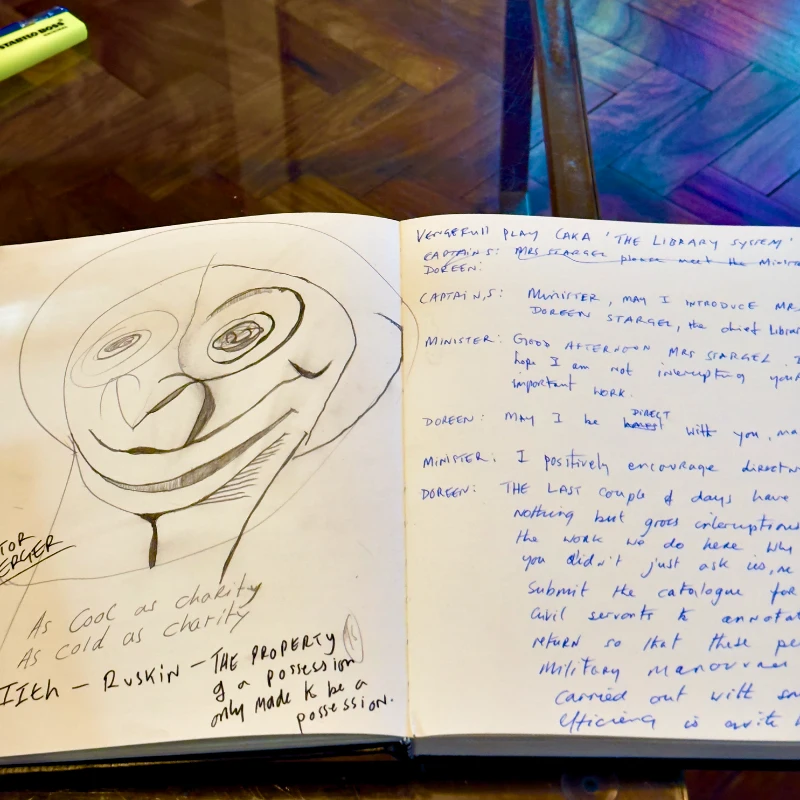 STABILO BOSS
TOR
ERGER
As Cool as charity
As cold as charity
IIth – RUSKIN – THE PROPERTY
of a possession
only made to be a
possession.
VENGEFULL PLAY (AKA 'THE LIBRARY SYSTEM'
CAPTAIN S: MRS STARGEL please meet the Minist
DOREEN:
CAPTAIN S: MINISTER, MAY I INTRODUCE MRS
DOREEN STARGEL, the chief Librar
MINISTER: GOOD AFTERNOON MRS STARGEL. I
hope I am not interrupting your
important WORK.
DIRECT
DOREEN: MAY I be honest with you, ma
MINISTER: I positively encourage directn
DOREEN: THE LAST couple of days have
nothing but gross interruptions
the work we do here. Why
you didn't just ask us, me
Submit the catalogue for
Civil servants to annotat
return so that these pe
military manouvres
carried out with so
efficiency is quite b